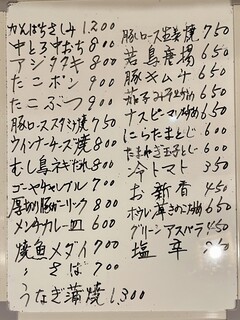 かんぱちさしみ 1,200
中とろ中おち 800
アジタタキ 800
たこポン 800
たこぶつ 900
豚ロース スタミナ焼 750
ウインナーチーズ焼 800
むし鳥ネギだれ 800
ゴーヤチャンプル 700
厚切り豚ガーリック 800
メンチカレー皿 600
焼魚メダイ 700
〃 さば 700
うなぎ蒲焼 1,300
豚ロース生姜焼 750
若鳥唐揚 650
豚キムチ 650
茄子みそ炒め 650
ナスピーマン炒め 650
にらたまとじ 600
たまねぎ玉子とじ 600
冷トマト 350
お新香 450
ポクレ葺きのこ炒め 650
グリーンアスパラ 450
塩辛 350